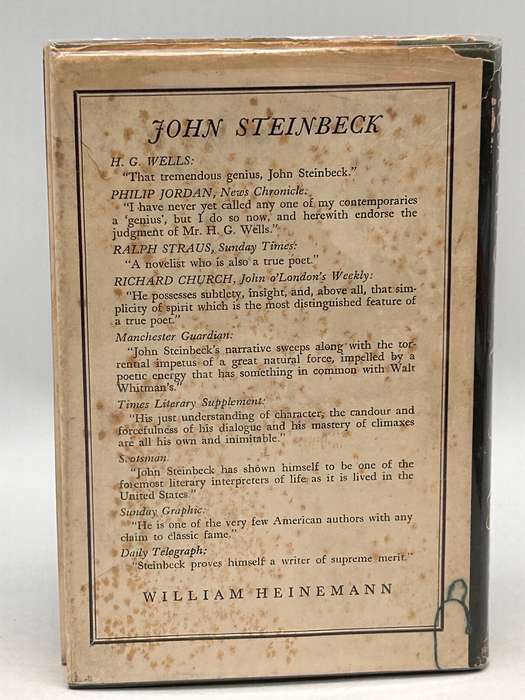 JOHN STEINBECK
H. G. WELLS:
"That tremendous genius, John Steinbeck."
PHILIP JORDAN, News Chronicle:
"I have never yet called any one of my contemporaries
a 'genius', but I do so now, and herewith endorse the
judgment of Mr. H. G. Wells."
RALPH STRAUS, Sunday Times:
"A novelist who is also a true poet."
RICHARD CHURCH, John o'London's Weekly:
"He possesses subtlety, insight, and, above all, that sim-
plicity of spirit which is the most distinguished feature of
a true poet."
Manchester Guardian:
"John Steinbeck's narrative sweeps along with the tor-
rential impetus of a great natural force, impelled by a
poetic energy that has something in common with Walt
Whitman's."
Times Literary Supplement:
"His just understanding of character, the candour and
forcefulness of his dialogue and his mastery of climaxes
are all his own and inimitable."
Scotsman
"John Steinbeck has shown himself to be one of the
foremost literary interpreters of life as it is lived in the
United States."
Sunday Graphic:
"He is one of the very few American authors with any
claim to classic fame."
Daily Telegraph:
"Steinbeck proves himself a writer of supreme merit."
WILLIAM HEINEMANN